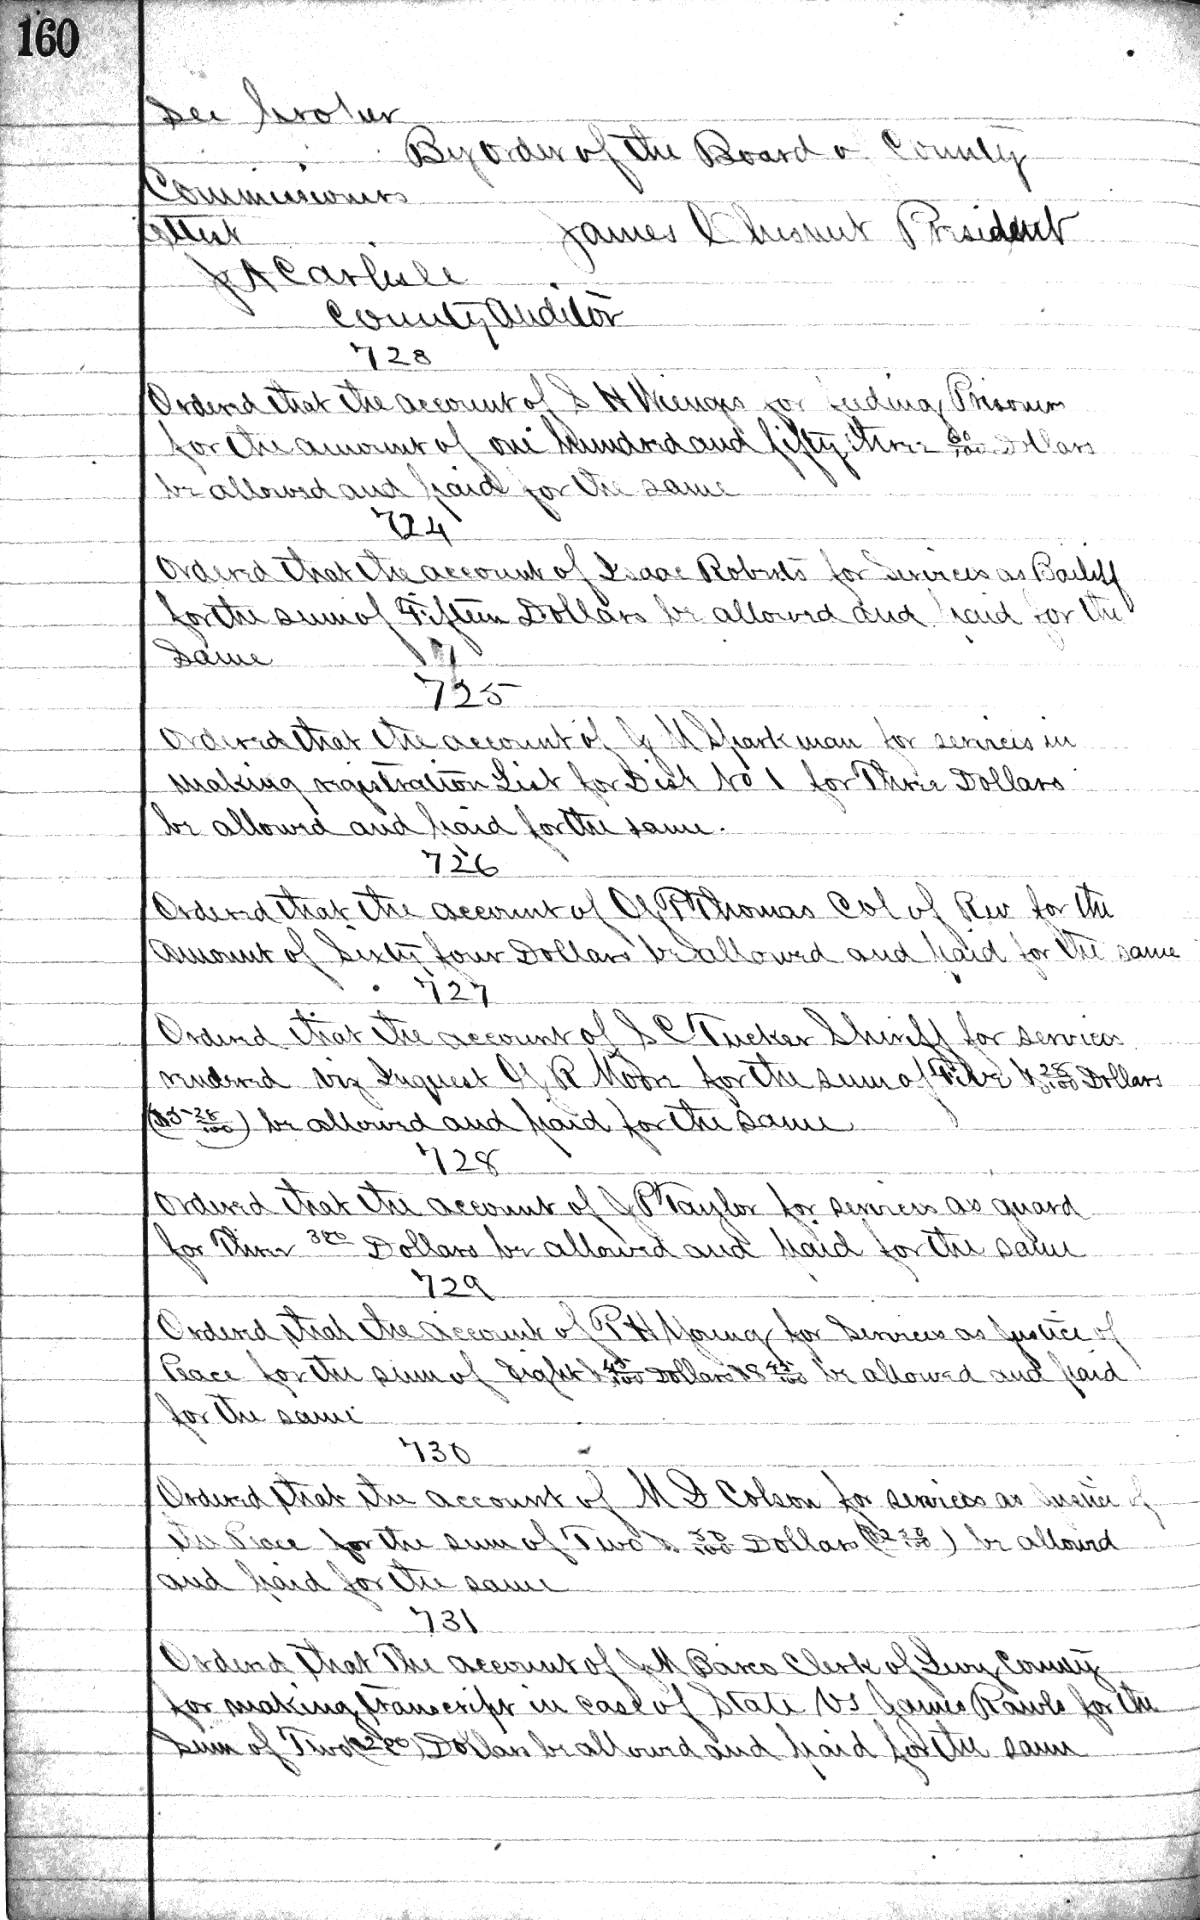 160
See
By order of the Board o County
Commissioners
Attest James Chesnut President
J A Carlisle
County Auditor
723
Ordered that the account of S H Wienges for feeding Prisoners
for the amount of one hundred and fifty three 60/100 Dollars
be allowed and paid for the same
724
Ordered that the account of Isaac Roberts for Services as Bailiff
for the sum of Fifteen Dollars be allowed and paid for the
Same
725
Ordered that the account of J M Sparkman for services in
making registration List for Dist No 1 for Three Dollars
be allowed and paid for the same.
726
Ordered that the account of P Thomas Col of Rev for the
Amount of Sixty four Dollars be allowed and paid for the same
727
Ordered that the account of S C Tucker Sheriff for services
rendered viz Inquest R Moore for the sum of Five & 28/100 Dollars
($5 28/100) be allowed and paid for the same
728
Ordered that the account of J P Taylor for services as guard
for Three 300 Dollars be allowed and paid for the same
729
Ordered that the account of P H Young for Services as Justice of
Peace for the sum of Eight & 45/100 Dollars $8 45/100 be allowed and paid
for the same
730
Ordered that the account of M D Colson for services as Justice of
the Peace for the sum of Two & 50/100 Dollars ($2 50/100) be allowed
and paid for the same
731
Ordered that The account of J M Barco Clerk of Levy County
for making transcript in case of State vs James Rawls for the
Sum of Two ($2 00) Dollars be allowed and paid for the same